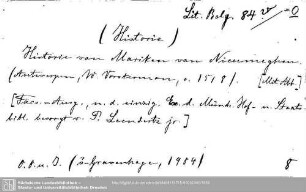 Lit. Belg. 84 v/-0
(Historie)
Historie van Mariken van Nieumeghen.
(Antwerpen, W. Vorsterman, c. 1518). [Mit Abb.]
[Facs.-Ausg., n. d. einzig. Ex. d. Münch. Hof- u. Staats-
bibl. besorgt v. P. Leendertz jr.]
O. O. u. O. ('s Gravenhage, 1904) 8
Sächsische Landesbibliothek -
Staats- und Universitätsbibliothek Dresden